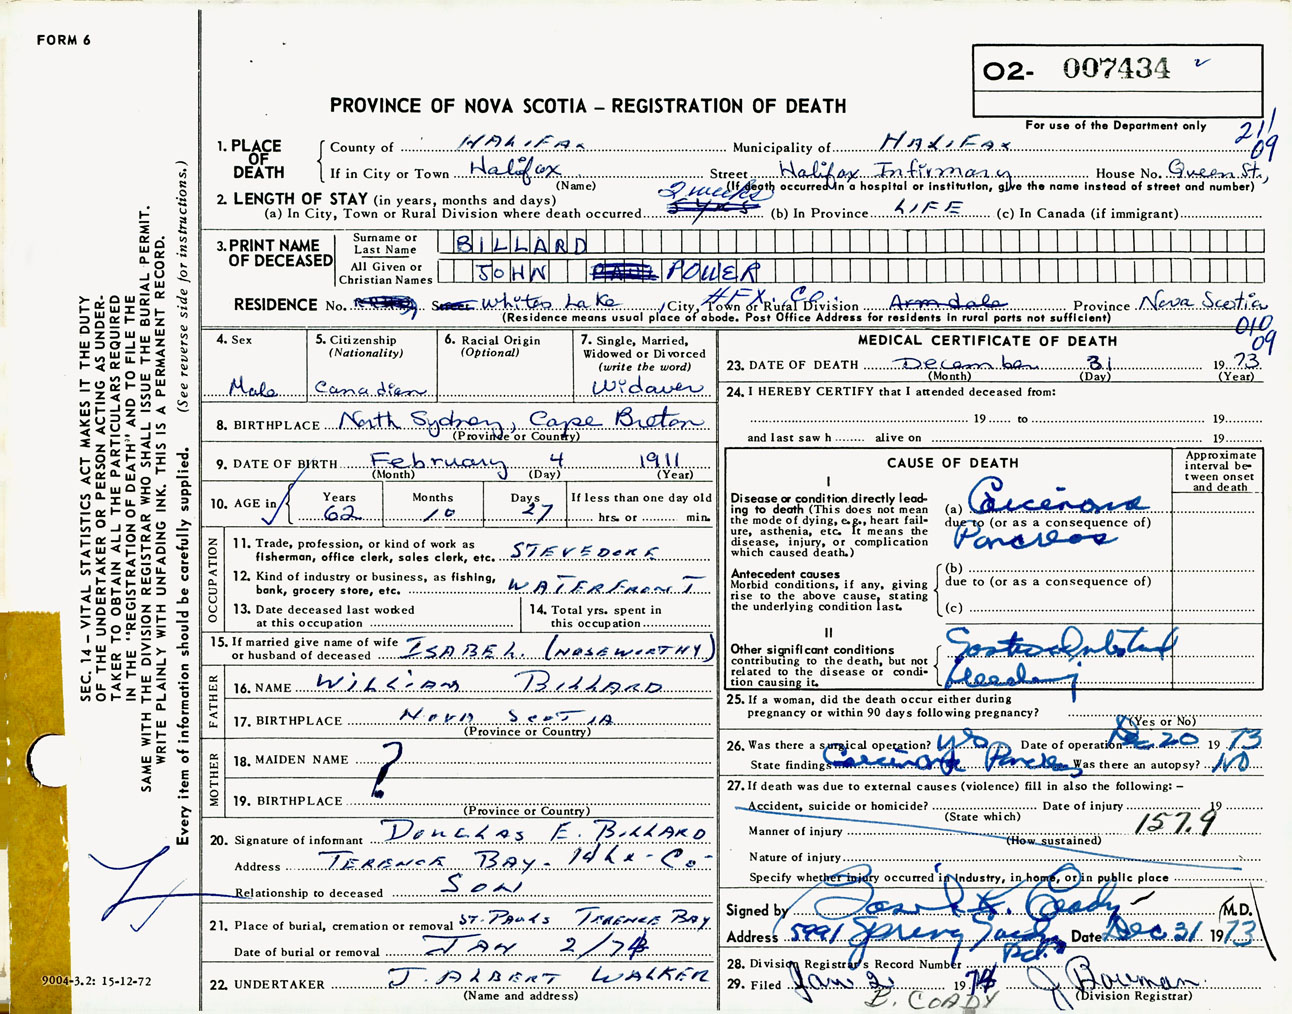 FORM 6
O2- 007434
PROVINCE OF NOVA SCOTIA – REGISTRATION OF DEATH
For use of the Department only
211
09
1. PLACE OF DEATH
County of HALIFAX Municipality of HALIFAX
If in City or Town Halifax Street Halifax Infirmary House No. Queen St.,
(Name) (If death occurred in a hospital or institution, give the name instead of street and number)
2. LENGTH OF STAY (in years, months and days) 2 weeks
(a) In City, Town or Rural Division where death occurred (b) In Province LIFE (c) In Canada (if immigrant)
3. PRINT NAME OF DECEASED
Surname or Last Name BILLARD
All Given or Christian Names JOHN PAUL POWER
RESIDENCE No. Street Whites Lake, City, Town or Rural Division HFX. Co. Armdale Province Nova Scotia
(Residence means usual place of abode. Post Office Address for residents in rural parts not sufficient)
010
09
SEC. 14 – VITAL STATISTICS ACT MAKES IT THE DUTY
OF THE UNDERTAKER OR PERSON ACTING AS UNDER-
TAKER TO OBTAIN ALL THE PARTICULARS REQUIRED
IN THE "REGISTRATION OF DEATH" AND TO FILE THE
SAME WITH THE DIVISION REGISTRAR WHO SHALL ISSUE THE BURIAL PERMIT.
WRITE PLAINLY WITH UNFADING INK. THIS IS A PERMANENT RECORD.
Every item of information should be carefully supplied. (See reverse side for instructions.)
4. Sex
Male
5. Citizenship
(Nationality)
Canadian
6. Racial Origin
(Optional)
7. Single, Married,
Widowed or Divorced
(write the word)
Widower
8. BIRTHPLACE North Sydney, Cape Breton
(Province or Country)
9. DATE OF BIRTH February 4 1911
(Month) (Day) (Year)
10. AGE in Years Months Days If less than one day old
62 10 27 hrs. or min.
OCCUPATION
11. Trade, profession, or kind of work as
fisherman, office clerk, sales clerk, etc. STEVEDORE
12. Kind of industry or business, as fishing,
bank, grocery store, etc. WATERFRONT
13. Date deceased last worked
at this occupation
14. Total yrs. spent in
this occupation
15. If married give name of wife
or husband of deceased ISABEL (NOSEWORTHY)
FATHER
16. NAME WILLIAM BILLARD
17. BIRTHPLACE NOVA SCOTIA
(Province or Country)
MOTHER
18. MAIDEN NAME ?
19. BIRTHPLACE
(Province or Country)
20. Signature of informant DOUGLAS E. BILLARD
Address TERENCE BAY - Hfx - Co -
Relationship to deceased SON
21. Place of burial, cremation or removal ST. PAULS TERENCE BAY
Date of burial or removal JAN 2/74
22. UNDERTAKER J. ALBERT WALKER
(Name and address)
9004-3.2: 15-12-72
MEDICAL CERTIFICATE OF DEATH
23. DATE OF DEATH December 31 1973
(Month) (Day) (Year)
24. I HEREBY CERTIFY that I attended deceased from:
19 to 19
and last saw h alive on 19
CAUSE OF DEATH
Approximate
interval be-
tween onset
and death
I
Disease or condition directly lead-
ing to death (This does not mean
the mode of dying, e.g., heart fail-
ure, asthenia, etc. It means the
disease, injury, or complication
which caused death.)
(a) Carcinoma
due to (or as a consequence of)
Pancreas
Antecedent causes
Morbid conditions, if any, giving
rise to the above cause, stating
the underlying condition last.
(b)
due to (or as a consequence of)
(c)
II
Other significant conditions
contributing to the death, but not
related to the disease or condi-
tion causing it.
Gastrointestinal
bleeding
25. If a woman, did the death occur either during
pregnancy or within 90 days following pregnancy?
(Yes or No)
26. Was there a surgical operation? yes Date of operation Dec 20 1973
State findings Carcinoma Pancreas Was there an autopsy? NO
27. If death was due to external causes (violence) fill in also the following: –
Accident, suicide or homicide? Date of injury 19
(State which)
Manner of injury 157.9
(How sustained)
Nature of injury
Specify whether injury occurred in industry, in home, or in public place
Signed by Coady M.D.
Address 5991 Spring Garden Rd. Date Dec 31 1973
28. Division Registrar's Record Number
29. Filed Jan 2 1974 J Bowman
(Division Registrar)
B. COADY